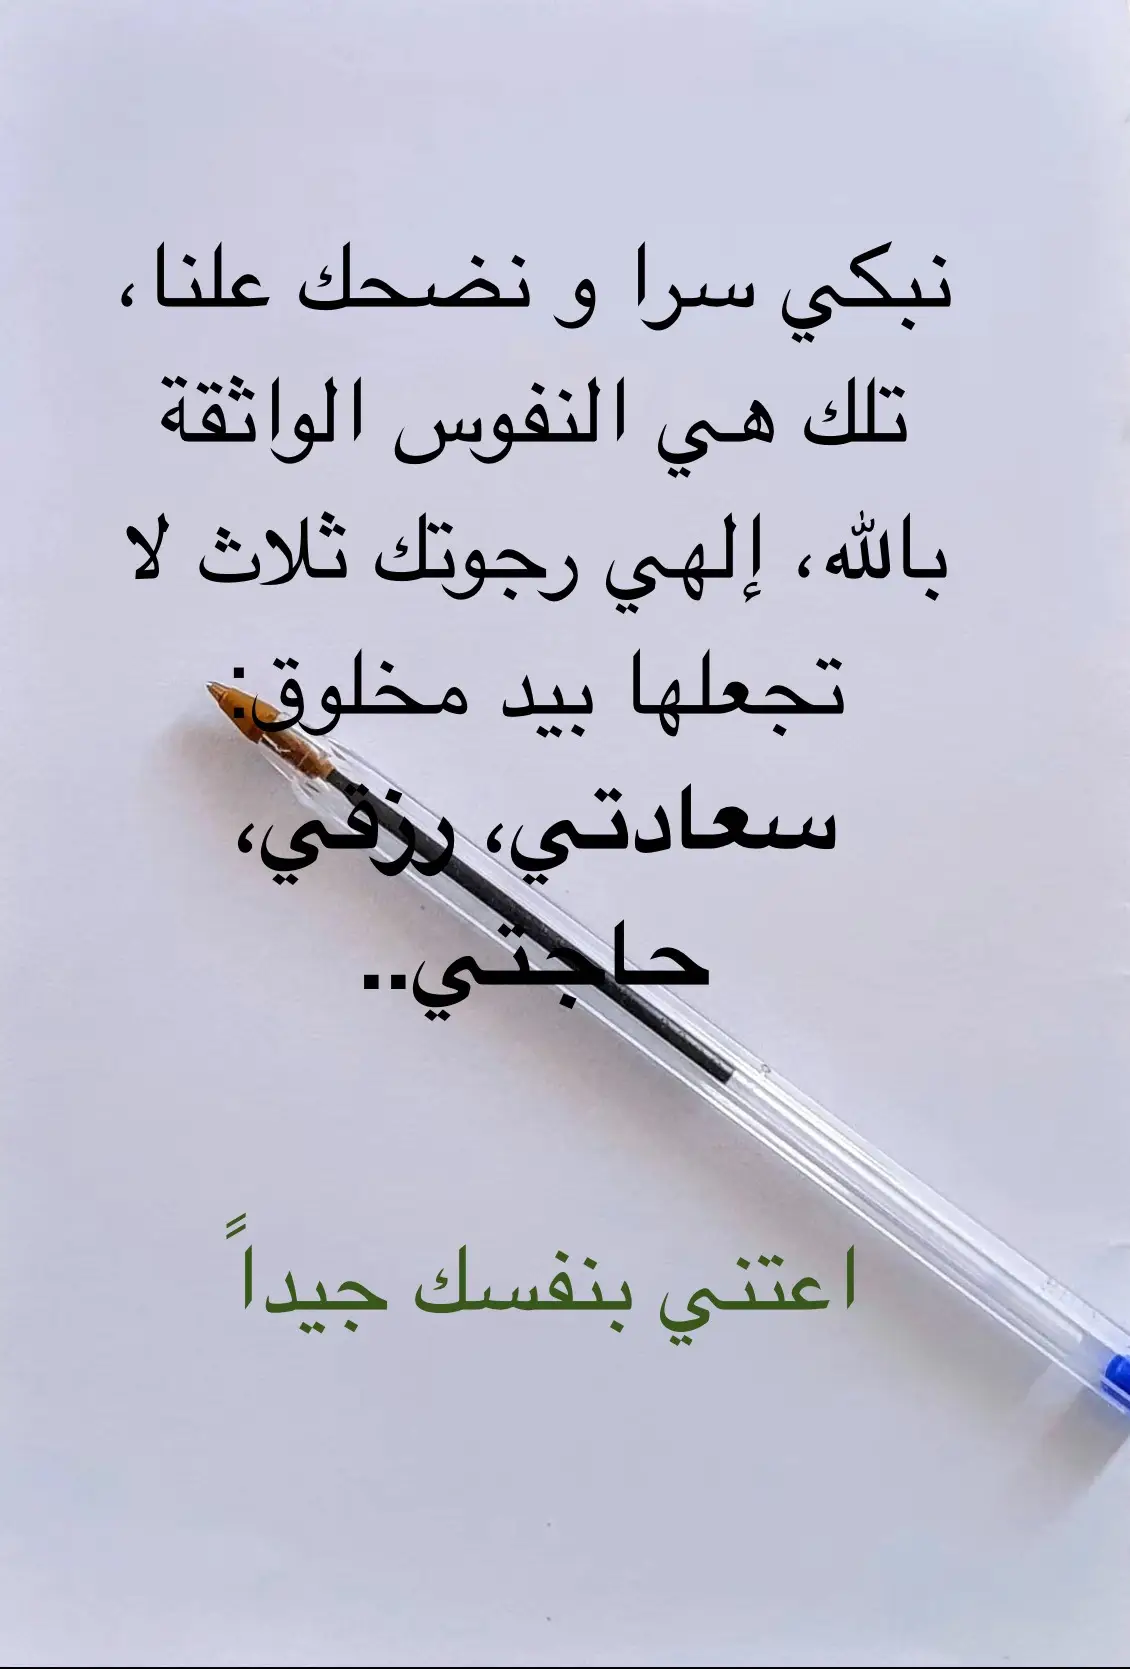 نبكي سرا و نضحك علنا،
تلك هي النفوس الواثقة
بالله، إلهي رجوتك ثلاث لا
تجعلها بيد مخلوق:
سعادتي، رزقي،
حاجتي..
اعتني بنفسك جيداً